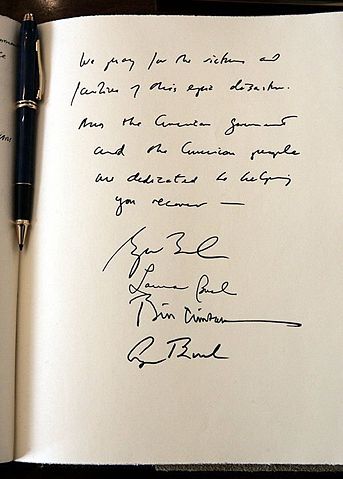 We pray for the victims and
families of this epic disaster.
the American government
and the American people
are dedicated to helping
you recover —
Laura Bush
Bill Clinton